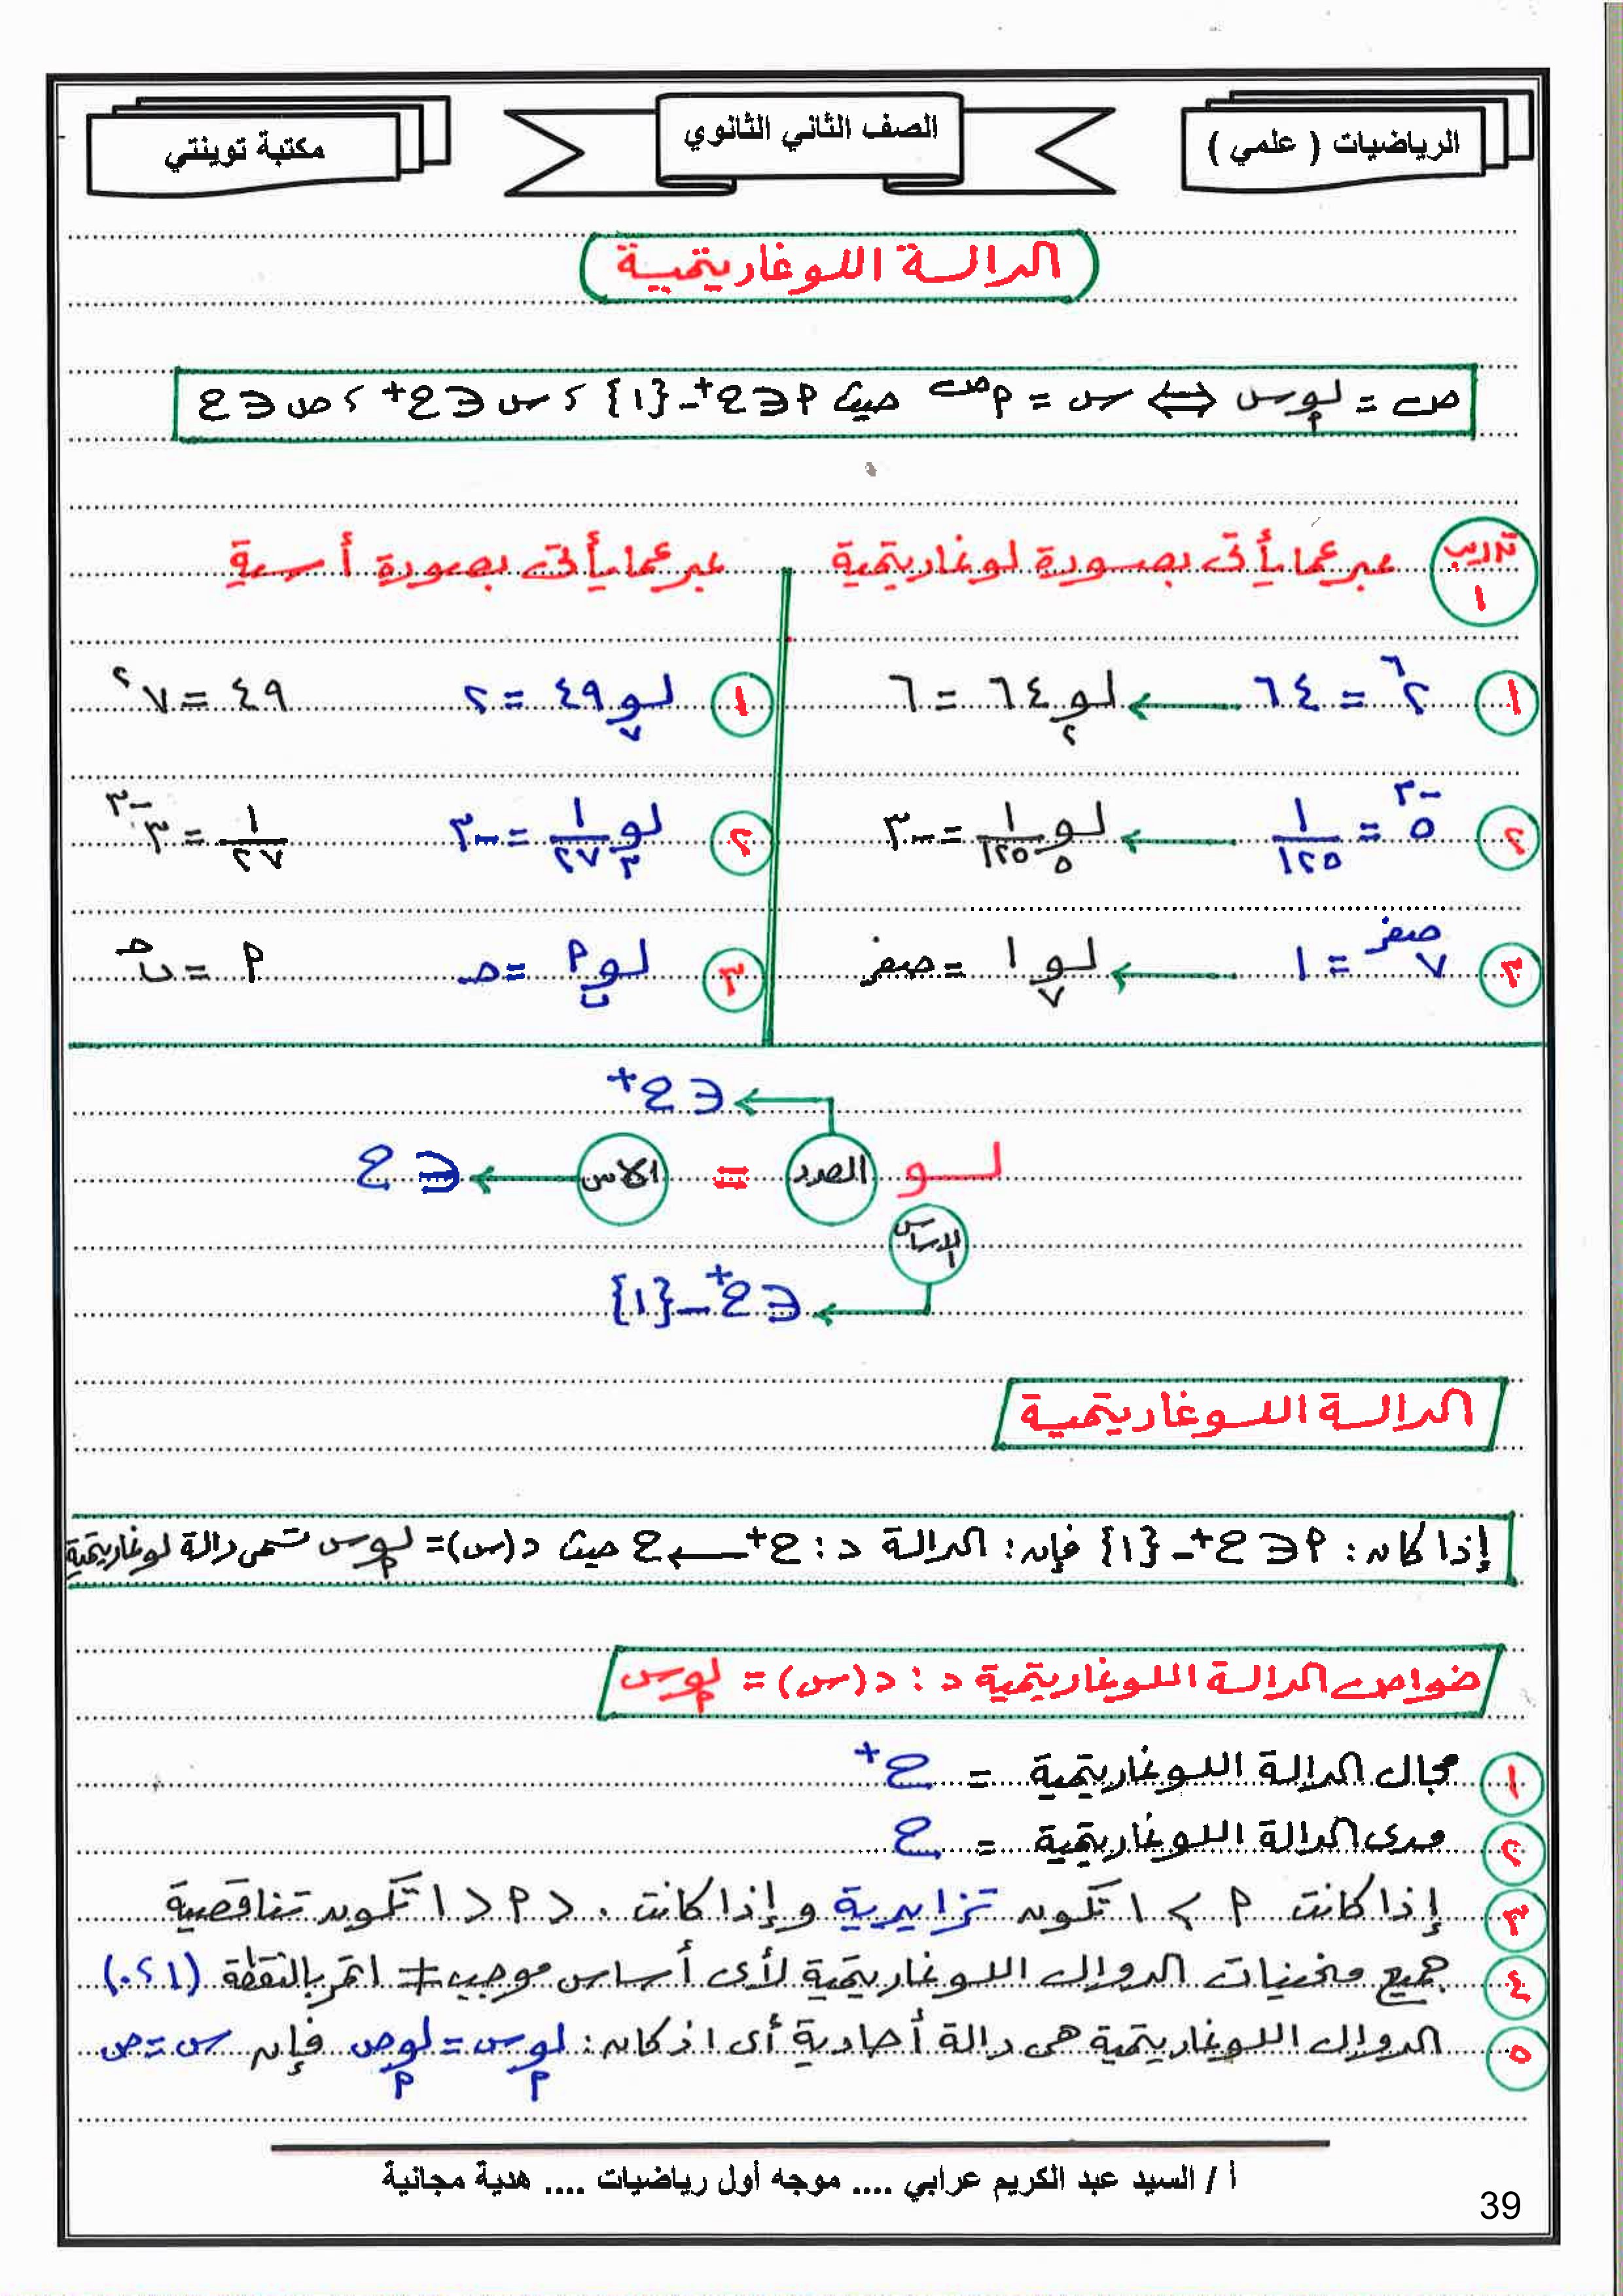 الرياضيات ( علمي )
الصف الثاني الثانوي
مكتبة توينتي
الدالة اللوغاريتمية
ص = لو_م س ⟺ س = م^ص حيث م ∈ ح⁺ - {١} ، س ∈ ح⁺ ، ص ∈ ح
تدريب ١
عبر عما يأتى بصورة لوغاريتمية
عبر عما يأتى بصورة أسية
١ ٢^٦ = ٦٤ ← لو_٢ ٦٤ = ٦
١ لو_٧ ٤٩ = ٢ ٤٩ = ٧^٢
٢ ٥^-٣ = ١/١٢٥ ← لو_٥ ١/١٢٥ = -٣
٢ لو_٣ ١/٢٧ = -٣ ١/٢٧ = ٣^-٣
٣ ٧^صفر = ١ ← لو_٧ ١ = صفر
٣ لو_ب م = حـ م = ب^حـ
∈ ح⁺
لو العدد = الأس ← ∈ ح
الأساس
∈ ح⁺ - {١}
الدالة اللوغاريتمية
إذا كان : م ∈ ح⁺ - {١} فإن : الدالة د : ح⁺ ← ح حيث د(س) = لو_م س تسمى دالة لوغاريتمية
خواص الدالة اللوغاريتمية د : د(س) = لو_م س
١ مجال الدالة اللوغاريتمية = ح⁺
٢ مدى الدالة اللوغاريتمية = ح
٣ إذا كانت م > ١ تكون تزايدية وإذا كانت ٠ < م < ١ تكون تناقصية
٤ جميع منحنيات الدوال اللوغاريتمية لأى أساس موجب ≠ ١ تمر بالنقطة (١ ، ٠)
٥ الدوال اللوغاريتمية هى دالة أحادية أى اذ كان : لو_م س = لو_م ص فإن س = ص
أ / السيد عبد الكريم عرابي .... موجه أول رياضيات .... هدية مجانية
39